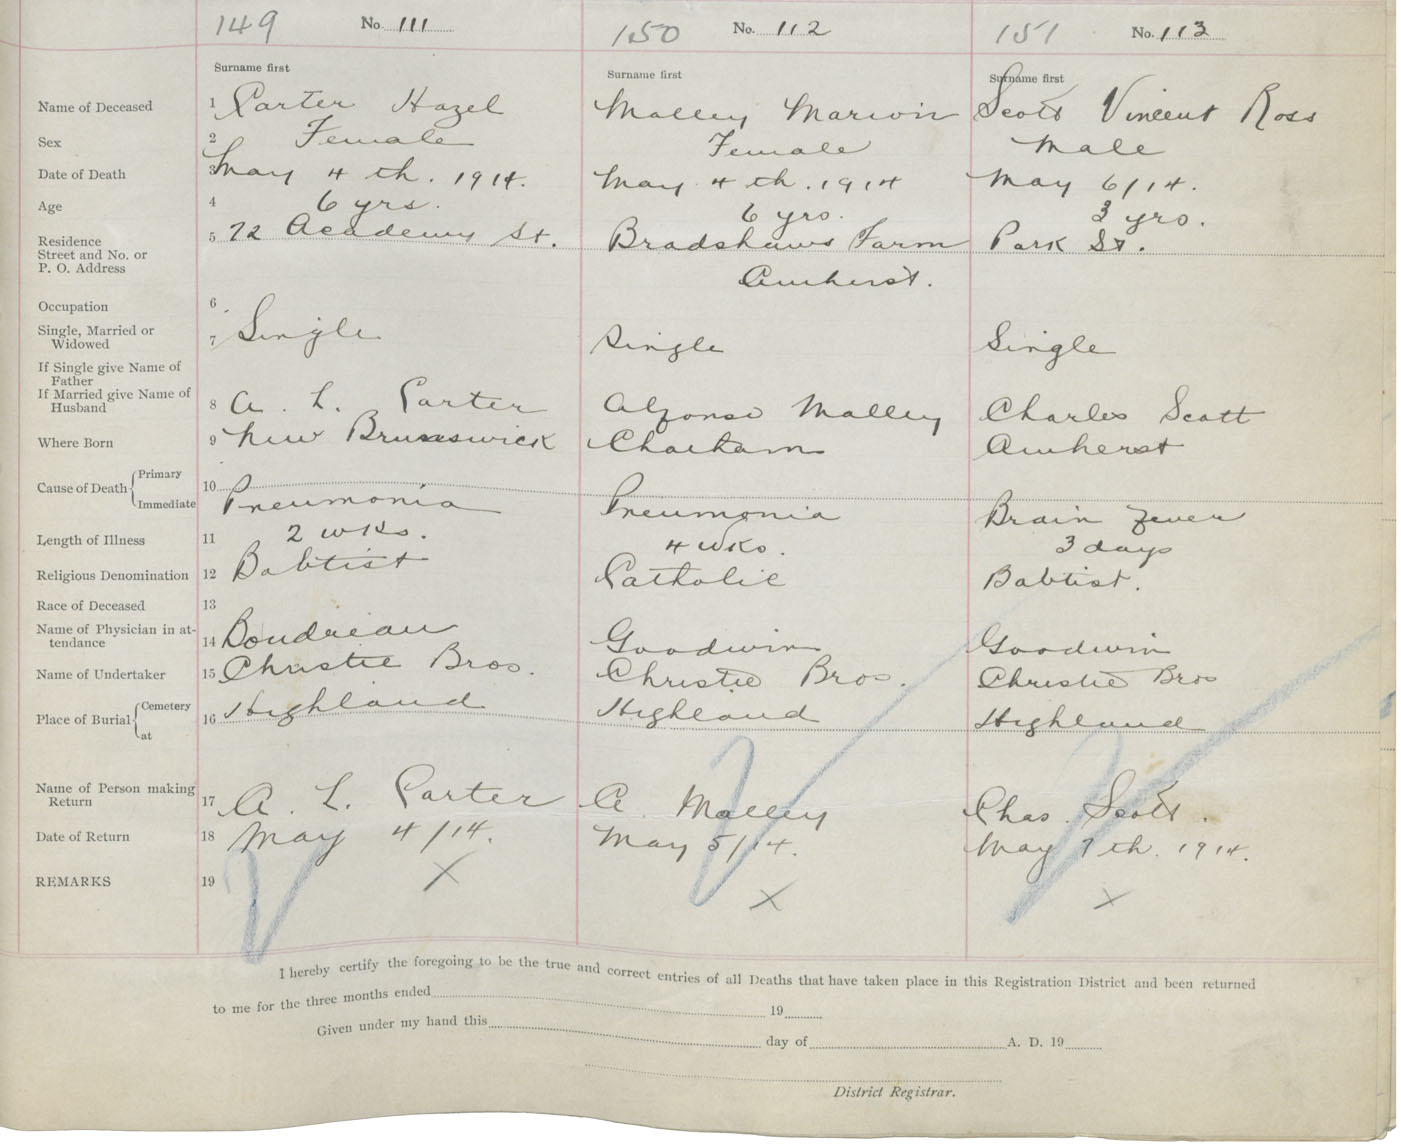 149 No. 111 150 No. 112 151 No. 113
Surname first Surname first Surname first
Name of Deceased 1 Carter Hazel Malley Marion Scott Vincent Ross
Sex 2 Female Female Male
Date of Death 3 May 4th. 1914. May 4th. 1914 May 6/14.
Age 4 6 yrs. 6 yrs. 3 yrs.
Residence
Street and No. or 5 72 Academy St. Bradshaws Farm Park St.
P. O. Address Amherst.
Occupation 6
Single, Married or
Widowed 7 Single Single Single
If Single give Name of
Father
If Married give Name of
Husband 8 A. L. Carter Alfonse Malley Charles Scott
Where Born 9 New Brunswick Chatham Amherst
Cause of Death { Primary 10
Immediate Pneumonia Pneumonia Brain Fever
Length of Illness 11 2 wks. 4 wks. 3 days
Religious Denomination 12 Babtist Catholic Babtist.
Race of Deceased 13
Name of Physician in at-
tendance 14 Boudreau Goodwin Goodwin
Name of Undertaker 15 Christie Bros. Christie Bros. Christie Bros
Place of Burial { Cemetery 16 Highland Highland Highland
at
Name of Person making
Return 17 A. L. Carter A Malley Chas. Scott.
Date of Return 18 May 4/14. May 5/14. May 7th. 1914.
REMARKS 19 X X X
I hereby certify the foregoing to be the true and correct entries of all Deaths that have taken place in this Registration District and been returned
to me for the three months ended 19
Given under my hand this day of A. D. 19
District Registrar.